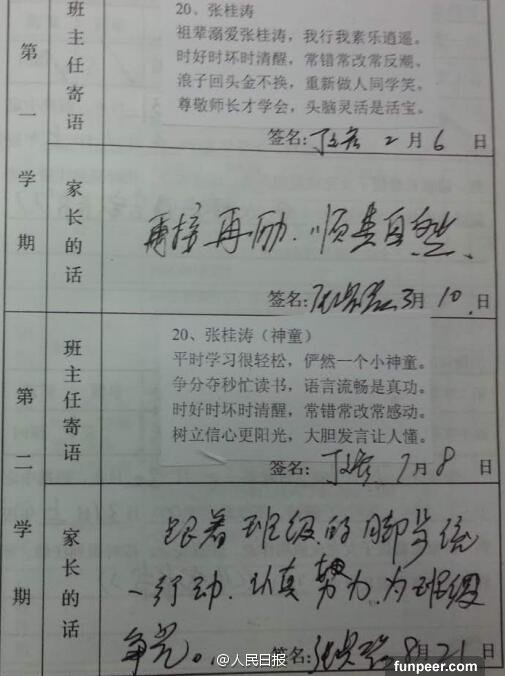 第一学期
班主任寄语
20、张桂涛
祖辈溺爱张桂涛，我行我素乐逍遥。
时好时坏时清醒，常错常改常反潮。
浪子回头金不换，重新做人同学笑。
尊敬师长才学会，头脑灵活是活宝。
签名: 2月6日
家长的话
再接再励.顺其自然.
签名: 3月10日
第二学期
班主任寄语
20、张桂涛（神童）
平时学习很轻松，俨然一个小神童。
争分夺秒忙读书，语言流畅是真功。
时好时坏时清醒，常错常改常感动。
树立信心更阳光，大胆发言让人懂。
签名: 7月8日
家长的话
跟着班级的脚步统
一行动.认真努力.为班级
争光。
签名: 8月21日
@人民日报
funpeer.com